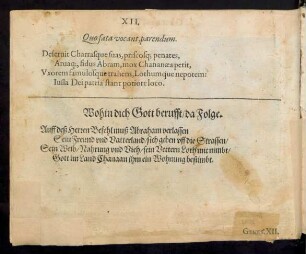 XII.
Quo fata vocant, parendum.
Deserit Charrasque suas, priscosq; penates,
Abram, mox Chananæa petit,
Vxorem famulosque trahens, Lothumque nepotem:
Iussa Dei patria stant potiore loco.
Wohin dich Gott berufft / da Folge.
Auff deß Herren Befehl muß Abraham verlassen
Sein Freund und Vatterland / sich geben vff die Strassen /
Sein Weib / Nahrung und Vieh / sein Vettern Loth mit nimbt /
Gott im Land Chanaan ihm ein Wohnung bestimbt.
XII.